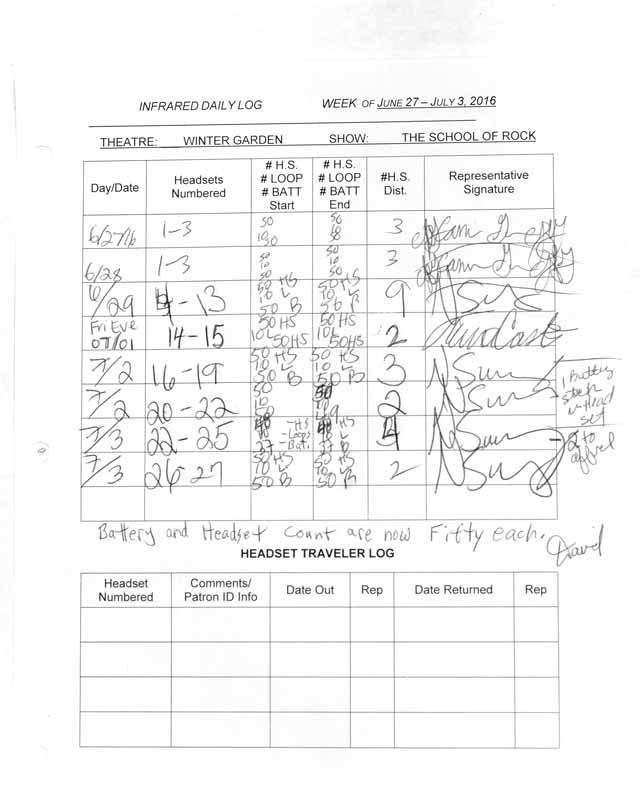 INFRARED DAILY LOG WEEK OF JUNE 27 – JULY 3, 2016
THEATRE: WINTER GARDEN SHOW: THE SCHOOL OF ROCK
Day/Date Headsets Numbered # H.S. # LOOP # BATT Start # H.S. # LOOP # BATT End #H.S. Dist. Representative Signature
6/27/16 1-3 50 10 50 50 10 50 3
6/28 1-3 50 10 50 50 10 50 3
6/29 4-13 50 HS 10 L 50 B 50 HS 10 L 50 B 9
Fri Eve 07/01 14-15 50 HS 10L 50 HS 50 HS 10L 50 HS 2
7/2 16-19 50 HS 10 L 50 B 50 HS 10 L 50 B 3
7/2 20-22 50 10 50 50 10 49 2
1 Battery stuck in head set
7/3 22-25 -HS -Loops -Bat. HS L B 4
7/3 26-27 50 HS 10 L 50 B 50 HS 10 L 50 B 2
Battery and Headset Count are now Fifty each.
David
HEADSET TRAVELER LOG
Headset Numbered Comments/ Patron ID Info Date Out Rep Date Returned Rep